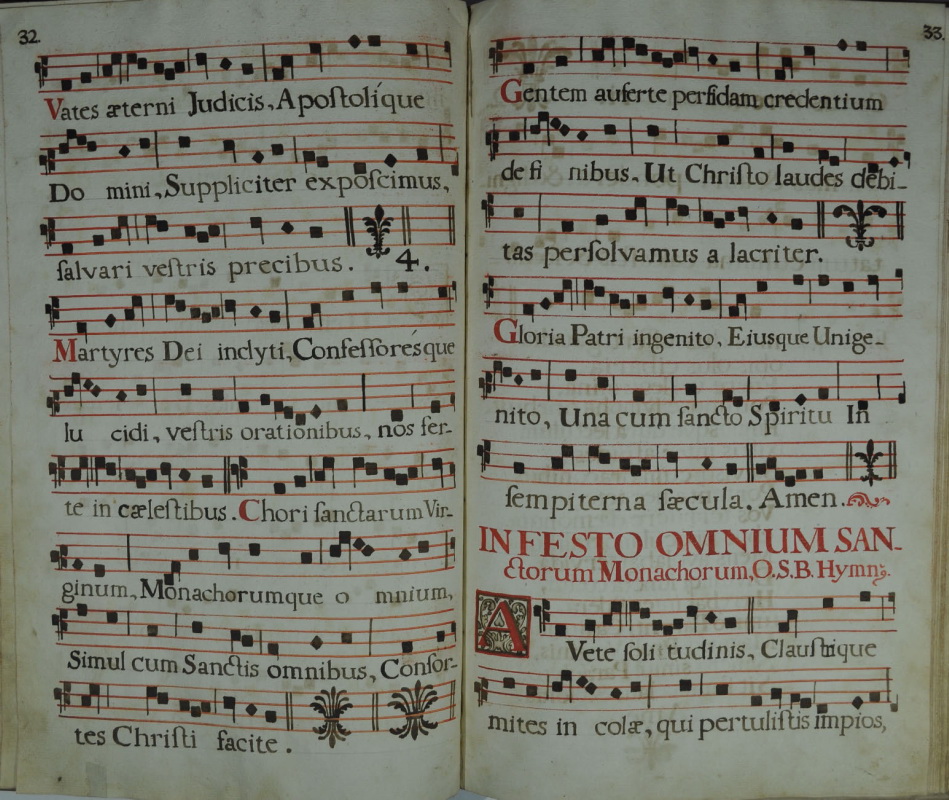 32.
Vates æterni Judicis, Apoſtolíque
Do mini, Suppliciter expoſcimus,
ſalvari veſtris precibus. 4.
Martyres Dei inclyti, Confeſſoréſque
lu cidi, veſtris orationibus, nos ſer-
te in cæleſtibus. Chori ſanctarum Vir-
ginum, Monachorumque o mnium,
Simul cum Sanctis omnibus, Conſor-
tes Chriſti facite.
33.
Gentem auferte perfidam credentium
de fi nibus. Ut Chriſto laudes debi-
tas perſolvamus a lacriter.
Gloria Patri ingenito, Eiusque Unige-
nito, Una cum ſancto Spiritu In
ſempiterna ſæcula. Amen.
IN FESTO OMNIUM SAN-
ctorum Monachorum, O.S.B. Hymn9.
AVete ſoli tudinis, Clauſtrique
mites in colæ, qui pertuliſtis impios,